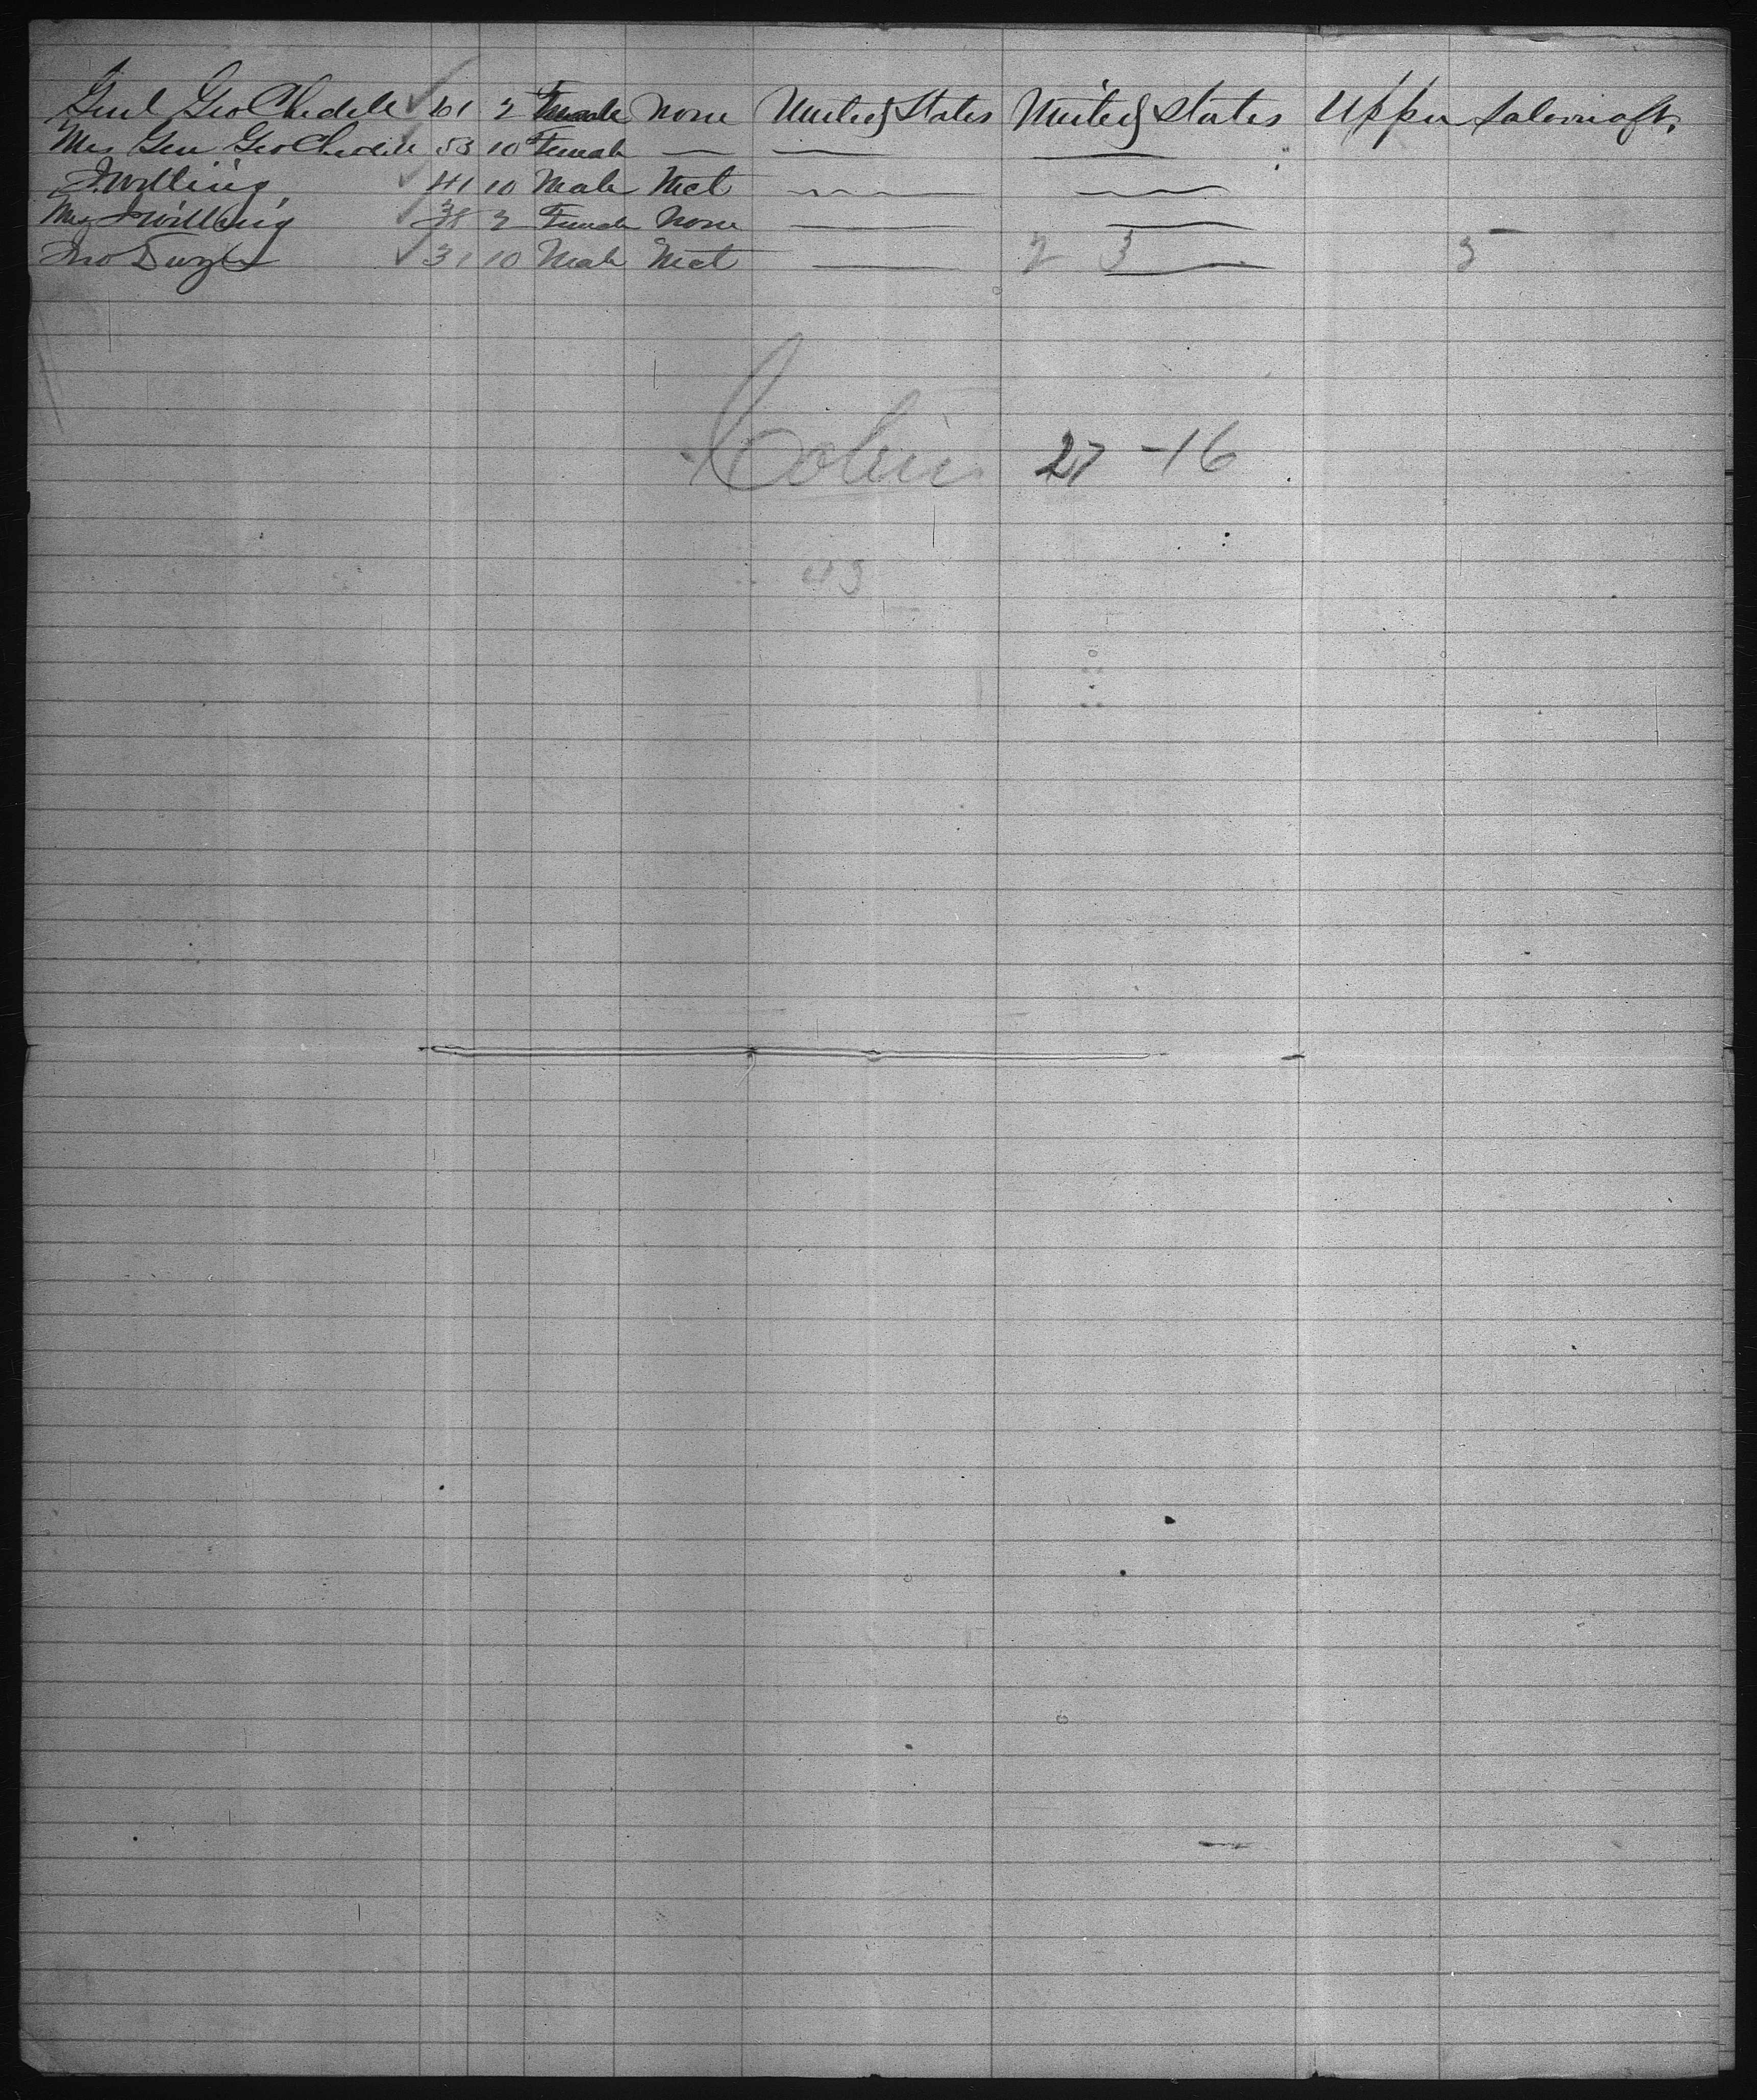 Genl Geo Chedell ✓ 61 2 Male None United States United States Upper Saloon aft.
Mrs Gen Geo Chedell ✓ 53 10 Female — — —
J Willing ✓ 41 10 Male Mct — —
Mrs J Willing ✓ 38 2 Female None — —
Jno ✓ 31 10 Male Mct — 2 3 — 5
Cabin 27 - 16
43